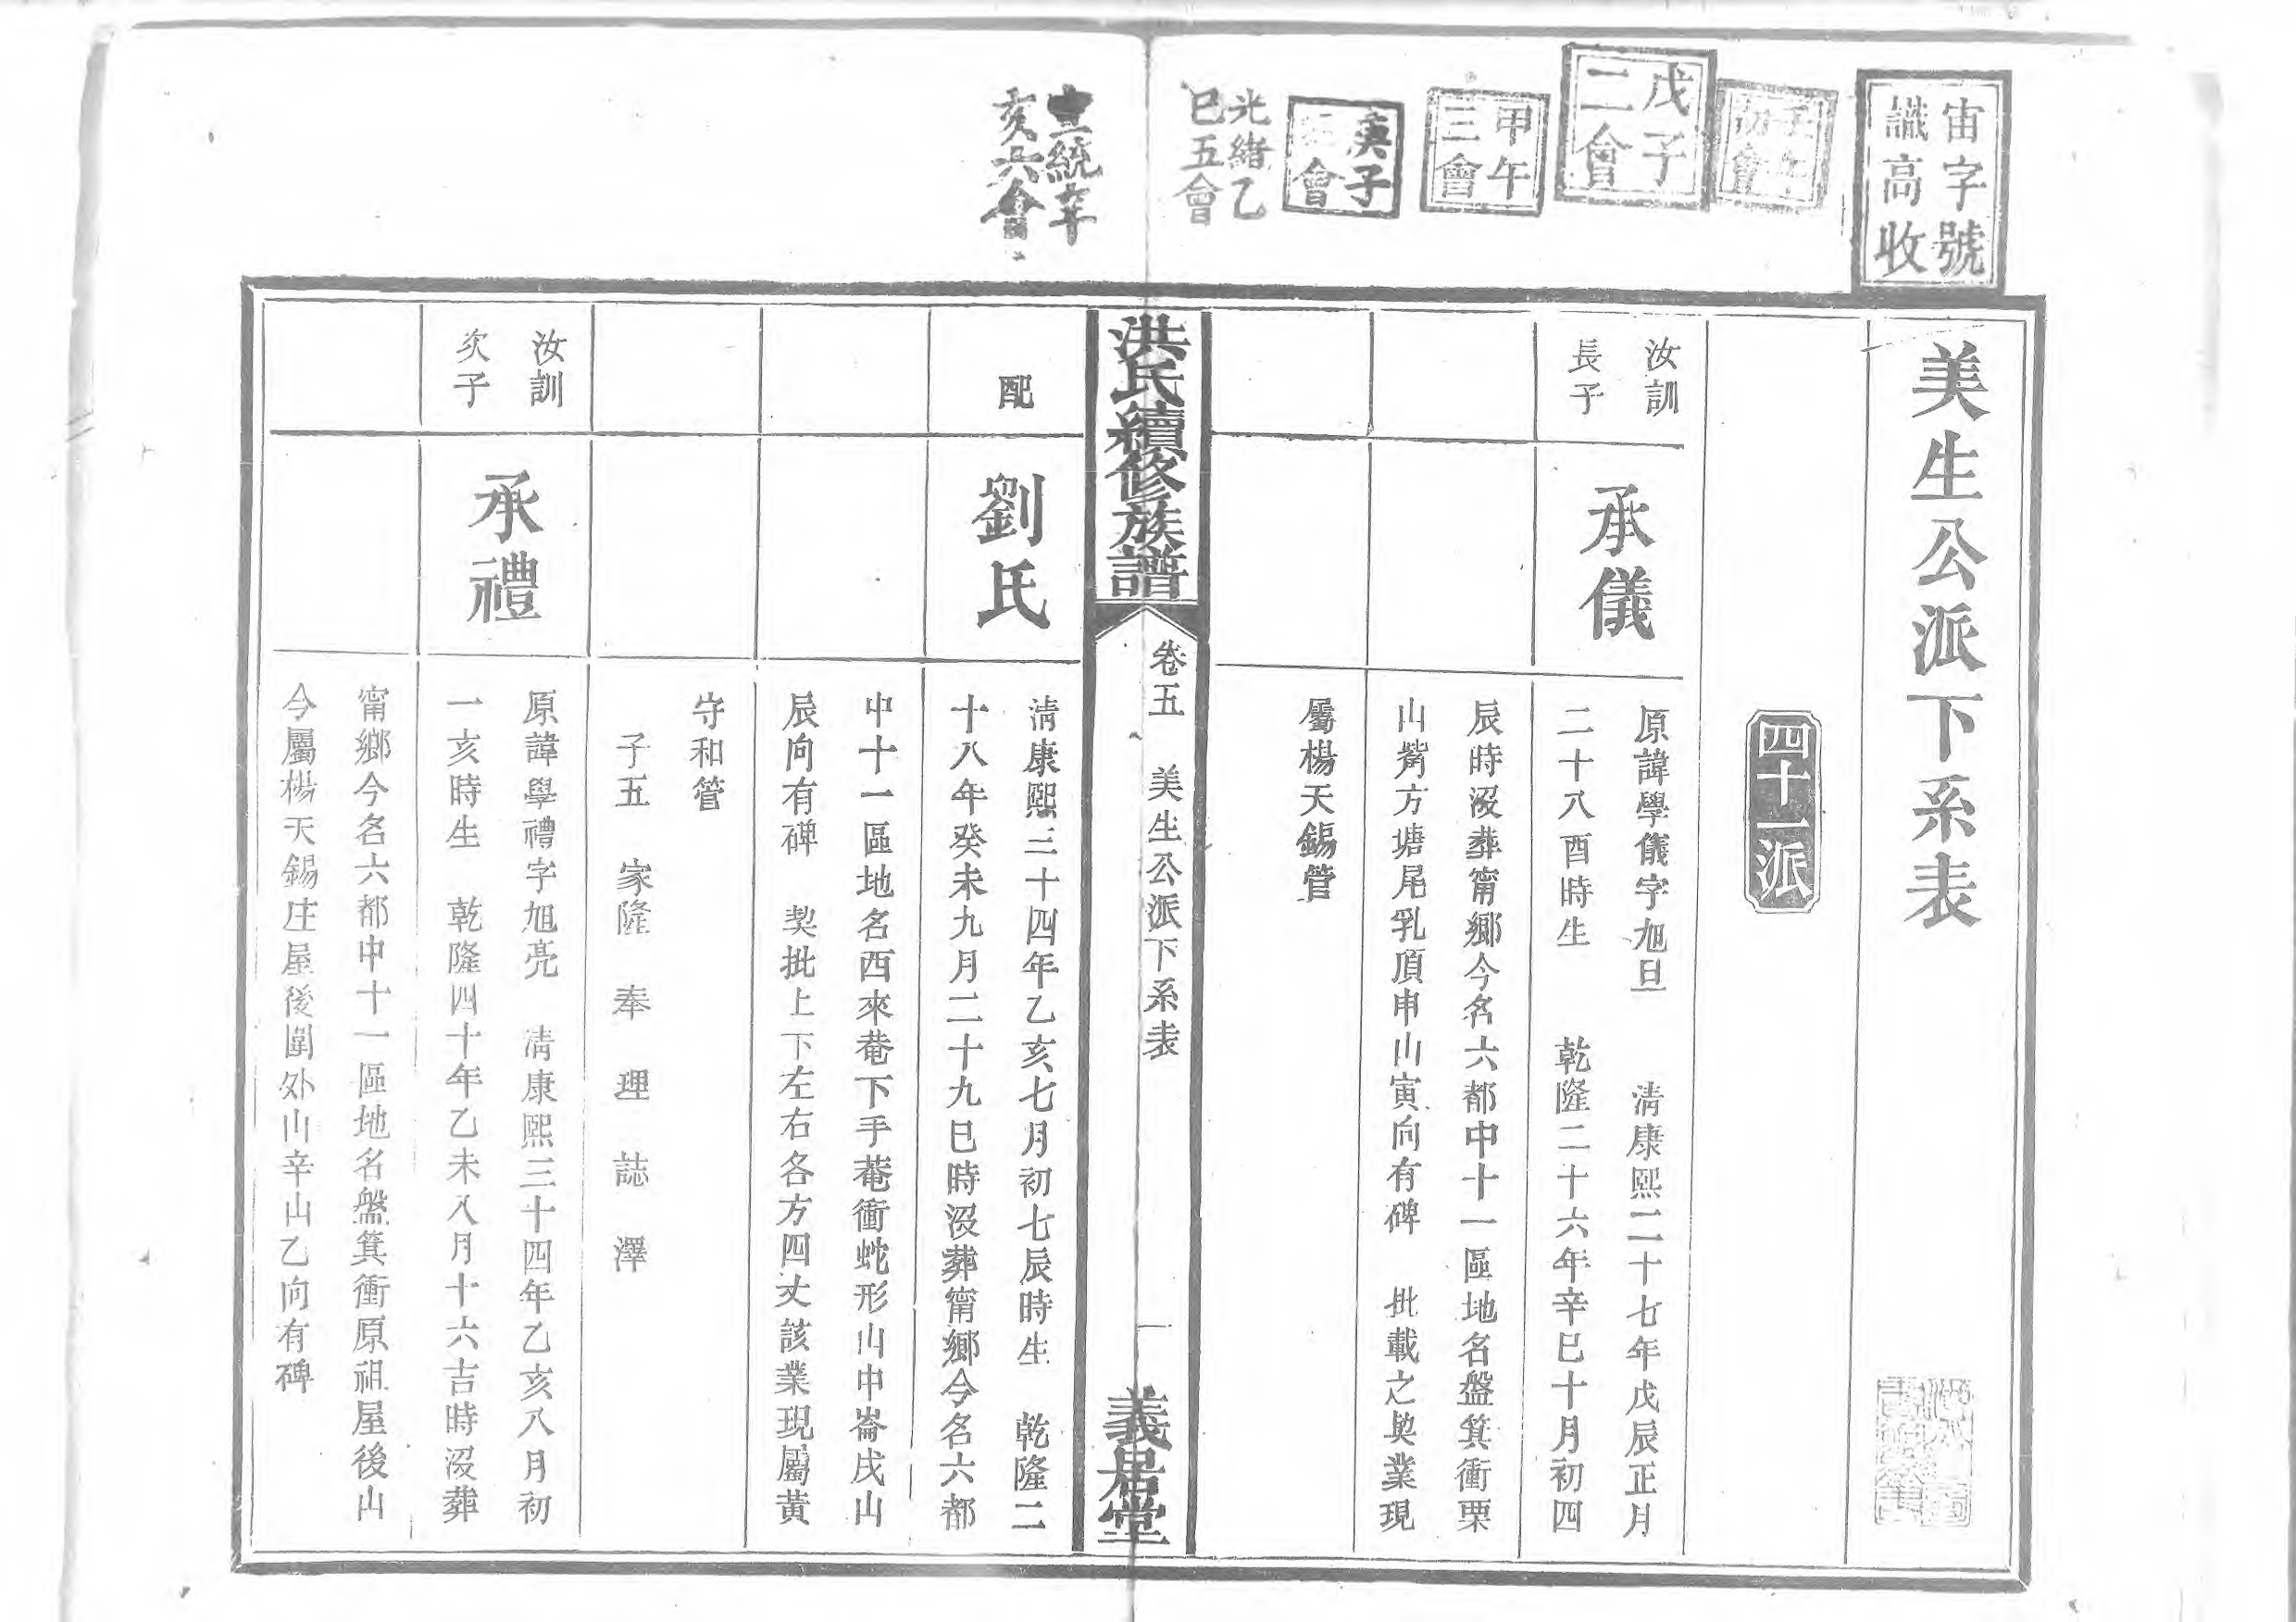 宙字號
識高收
戊子
二會
甲午
三會
庚子
會
光緒乙
巳五會
宣統辛
亥六會
美生公派下系表
四十一派
汝訓
長子
承儀
原諱學儀字旭旦 清康熙二十七年戊辰正月
二十八酉時生 乾隆二十六年辛巳十月初四
辰時沒葬甯鄉今名六都中十一區地名盤箕衝栗
山嘴方塘尾乳頂申山寅向有碑 批載之契業現
屬楊天錫管
洪氏續修族譜
卷五 美生公派下系表
一
義居堂
配
劉氏
清康熙三十四年乙亥七月初七辰時生 乾隆二
十八年癸未九月二十九巳時沒葬甯鄉今名六都
中十一區地名西來菴下手菴衝蛇形山中崙戌山
辰向有碑 契批上下左右各方四丈該業現屬黃
守和管
子五 家隆 奉 理 誌 澤
汝訓
次子
承禮
原諱學禮字旭亮 清康熙三十四年乙亥八月初
一亥時生 乾隆四十年乙未八月十六吉時沒葬
甯鄉今名六都中十一區地名盤箕衝原祖屋後山
今屬楊天錫庄屋後圍外山辛山乙向有碑